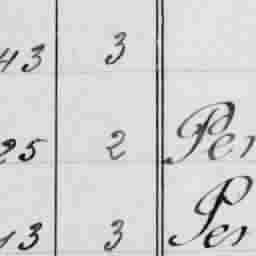 43 3
25 2 Per
13 3 Per